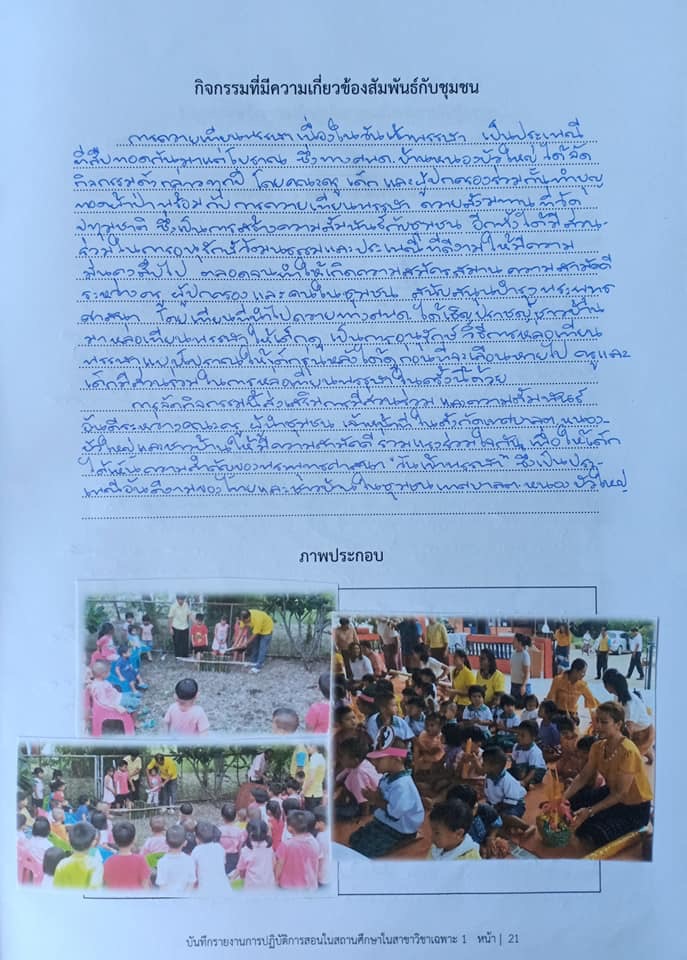 กิจกรรมที่มีความเกี่ยวข้องสัมพันธ์กับชุมชน
การถวายเทียนพรรษาเนื่องในวันเข้าพรรษา เป็นประเพณี
ที่สืบทอดกันมาแต่โบราณ ซึ่งทางศพด.บ้านหนองบัวใหญ่ ได้จัด
กิจกรรมดังกล่าวทุกปี โดยคณะครู เด็ก และผู้ปกครองร่วมกันทำบุญ
ทอดผ้าป่าพร้อมกับการถวายเทียนพรรษา ถวายสังฆทาน ที่วัด
ปทุมชาติ ซึ่งเป็นการสร้างความสัมพันธ์กับชุมชน อีกทั้งได้มีส่วน
ร่วมในการอนุรักษ์วัฒนธรรมและประเพณีที่ดีงามให้มีความ
มั่นคงสืบไป ตลอดจนทำให้เกิดความสมัครสมาน ความสามัคคี
ระหว่างครู ผู้ปกครอง และคนในชุมชน สนับสนุนบำรุงพระพุทธ
ศาสนา โดยเทียนที่นำไปถวายทางศพด.ได้เชิญปราชญ์ชาวบ้าน
มาหล่อเทียนพรรษาให้เด็กดู เป็นการอนุรักษ์วิธีการหล่อเทียน
พรรษาแบบโบราณให้เด็กรุ่นหลังได้ดูก่อนที่จะเลือนหายไป ครูและ
เด็กมีส่วนร่วมในการหล่อเทียนพรรษาในครั้งนี้ด้วย
การจัดกิจกรรมนี้ส่งเสริมการมีส่วนร่วม และความสัมพันธ์
อันดีระหว่างคณะครู ผู้นำชุมชน เจ้าหน้าที่ในสังกัดเทศบาลต.หนอง
บัวใหญ่และชาวบ้านให้มีความสามัคคี รวมแรงร่วมใจกัน เพื่อให้เด็ก
ได้เห็นความสำคัญของพระพุทธศาสนา "วันเข้าพรรษา" ซึ่งเป็นประ
เพณีอันดีงามของไทยและชาวบ้านในชุมชนเทศบาลต.หนองบัวใหญ่
ภาพประกอบ
บันทึกรายงานการปฏิบัติการสอนในสถานศึกษาในสาขาวิชาเฉพาะ 1 หน้า | 21